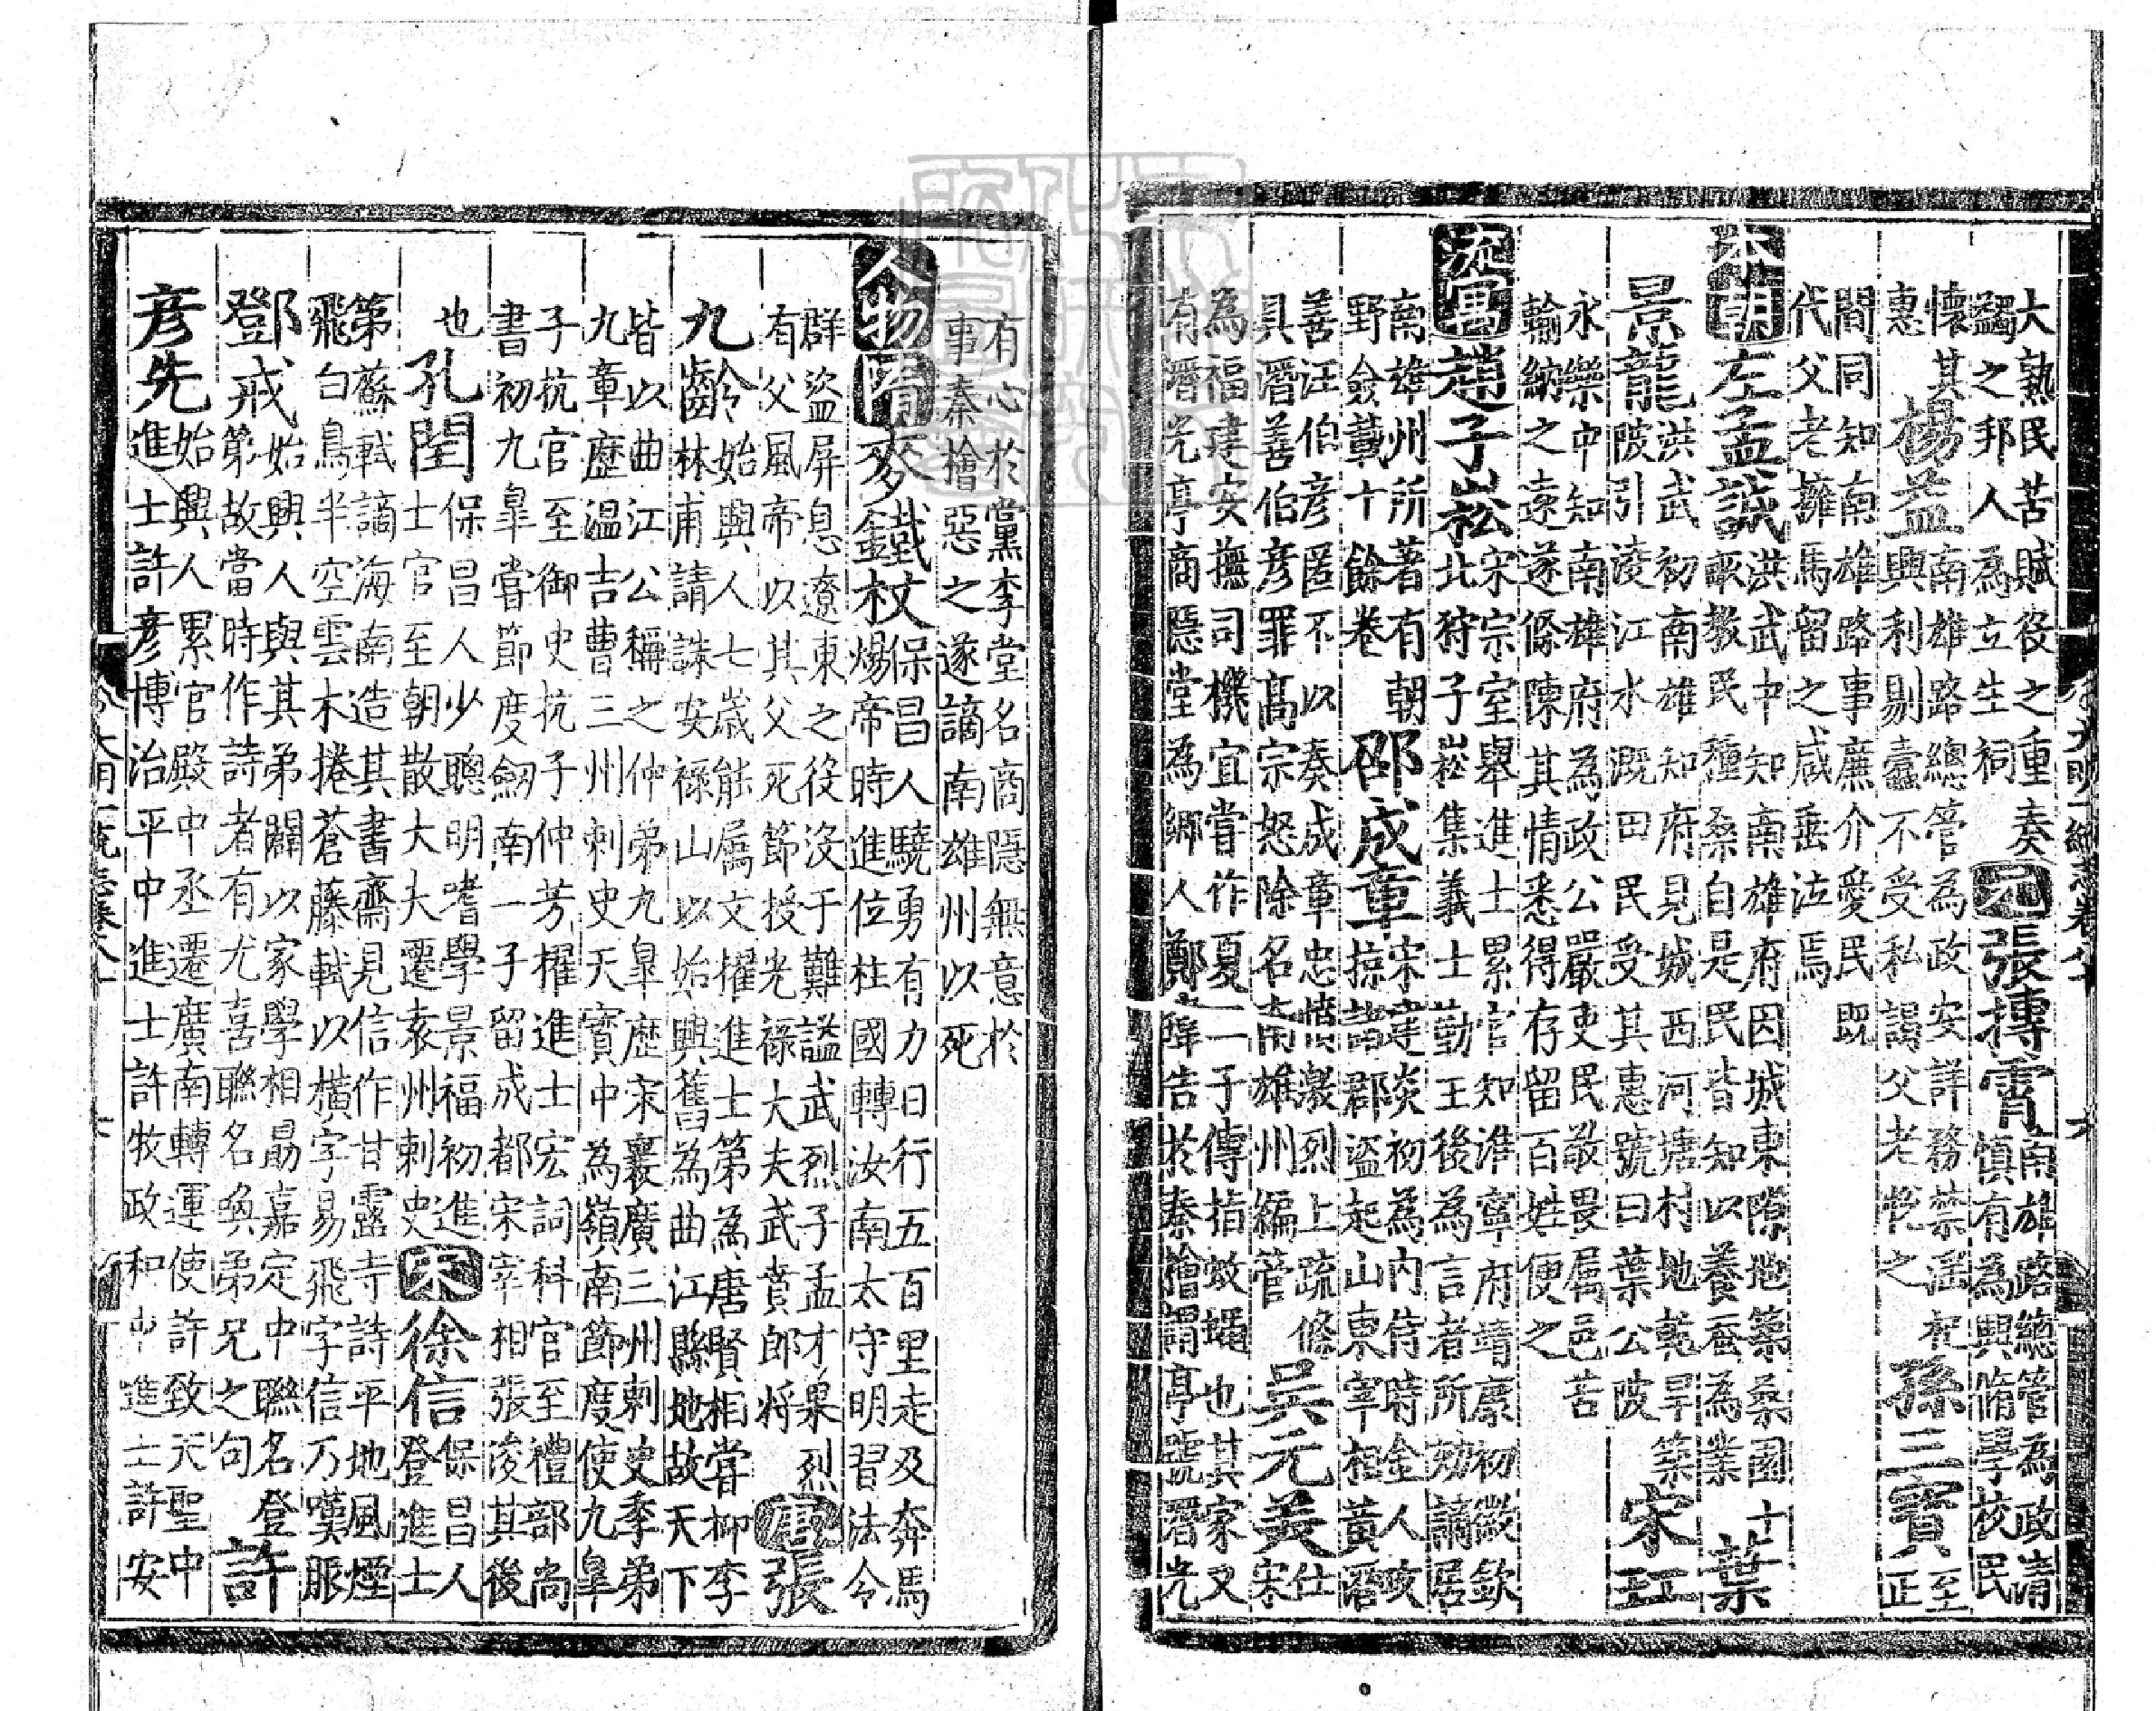 大熟民苦賦役之重奏
蠲之邦人為立生祠 元 張摶霄 南雄路總管為政清
慎有為興脩學校民
懷其
惠 楊益 南雄路總管為政安詳務禁淫祀
興利剔蠹不受私謁父老悅之 孫三寳 至
正
間同知南雄路事廉介愛民既
代父老擁馬留之咸垂泣焉
本朝 左孟誠 洪武中知南雄府因城東隙地築桑園十
畝教民種桑自是民皆知以養蚕為業 葉
景龍 洪武初南雄知府見城西河塘村地乾旱築
陂引淩江水溉田民受其惠號曰葉公陂 宋玨
永樂中知南雄府為政公嚴吏民敬畏属邑苦
輸納之遠遂條陳其情悉得存留百姓便之
流寓 趙子崧 宋宗室舉進士累官知淮寧府靖康初徽欽
北狩子崧集義士勤王後為言者所劾謫居
南雄州所著有朝
野僉載十餘卷 邵成章 宋建炎初為内侍時金人攻
掠諸郡盜起山東宰相黃潛
善汪伯彥匿不以奏成章忠憤激烈上疏條
具潛善伯彥罪髙宗怒除名南雄州編管 吳元美 仕
宋
為福建安撫司機宜嘗作夏二子傳指蚊蠅也其家又
有潛光亭商隱堂為鄉人鄭瑋告於秦檜謂亭號潛光
有心於黨李堂名商隱無意於
事秦檜惡之遂謫南雄州以死
人物 隋 麥鐵杖 保昌人驍勇有力日行五百里走及奔馬
煬帝時進位柱國轉汝南太守明習法令
群盜屏息遼東之役没于難謚武烈子孟才果烈
有父風帝以其父死節授光禄大夫武賁郎將 唐 張
九齡 始興人七歲能属文擢進士第為唐賢相嘗抑李
林甫請誅安禄山以始興舊為曲江縣地故天下
皆以曲江公稱之仲弟九皐歷宋襄廣三州刺史季弟
九章歷温吉曹三州刺史天寳中為嶺南節度使九皐
子抗官至御史抗子仲芳擢進士宏詞科官至禮部尚
書初九皐嘗節度劔南一子留成都宋宰相張浚其後
也 孔閏 保昌人少聰明嗜學景福初進
士官至朝散大夫遷袁州刺史 宋 徐信 保昌人
登進士
第蘇軾謫海南造其書齋見信作甘露寺詩平地風煙
飛白鳥半空雲木捲蒼藤軾以橫字易飛字信乃嘆服
鄧戒 始興人與其弟闢以家學相勗嘉定中聯名登
第故當時作詩者有尤喜聯名奐弟兄之句 許
彥先 始興人累官殿中丞遷廣南轉運使許致天聖中
進士許彥博治平中進士許牧政和中進士許安